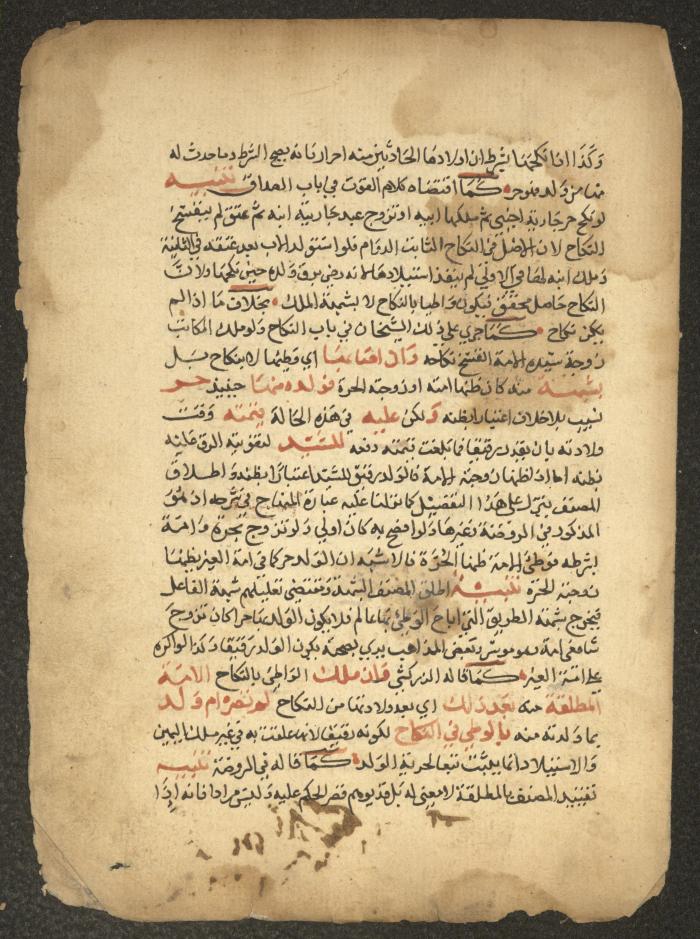 وكذا اذا نكحها بشرط ان اولادها الحادثين منه احرار فانه يصح الشرط وما حدث له
منها من ولد فهو حر كما اقتضاه كلام القوت في باب الصداق تنبيه
لو نكح حر جارية اجنبي ثم ملكها ابنه او تزوج عبد جارية ابنه ثم عتق لم ينفسخ
النكاح لان الاصل في النكاح الثابت الدوام فلو استولد الاب بعد عتقه في الثانية
وملك ابنه لها في الاولى لم ينفذ استيلادها لانه رضي برق ولده حين نكحها ولان
النكاح حاصل محقق فيكون واطيا بالنكاح لا بشبهة الملك بخلاف ما اذا لم
يكن نكاح كما جرى على ذلك الشيخان في باب النكاح ولو ملك المكاتب
زوجة سيده الامة انفسخ نكاحه وان اصابها اي وطيها لا بنكاح بل
بشبهة منه كان ظنها امته او زوجته الحرة فولده منها حينئذ حر
نسيب بلا خلاف اعتبارا بظنه ولكن عليه في هذه الحالة قيمته وقت
ولادته بان يقدر رقيقا فما بلغت قيمته دفعه للسيد لتفويته الرق عليه
بظنه اما اذا ظنها زوجته الامة فالولد رقيق للسيد اعتبارا بظنه واطلاق
المصنف ينزل على هذا التفصيل كما نزلنا عليه عبارة المنهاج في شرحه اذ هو
المذكور في الروضة وغيرها ولو افصح به كان اولى ولو تزوج بحرة وامة
بشرطه فوطئ الامة ظنها الحرة فالاشبه ان الولد حر كما في امة الغير يظنها
زوجته الحرة تنبيه اطلق المصنف الشبهة ومقتضى تعليلهم شبهة الفاعل
فيخرج شبهة الطريق التي اباح الوطئ بها عالم فلا يكون الولد بها حرا كان تزوج
شافعي امة وهو موسر وبعض المذاهب يرى بصحته يكون الولد رقيقا وكذا لو اكره
على امة الغير كما قاله الزركشي فان ملك الواطئ بالنكاح الامة
المطلقة منه بعد ذلك اي بعد ولادتها من النكاح لم تصر ام ولد
بما ولدته منه بالوطئ في النكاح لكونه رقيقا لانها علقت به في غير ملك اليمين
والاستيلاد انما يثبت تبعا لحرية الولد كما قاله في الروضة تنبيه
تقييد المصنف بالمطلقة لا معنى له بل قد يوهم قصر الحكم عليه وليس مرادا فانه اذا